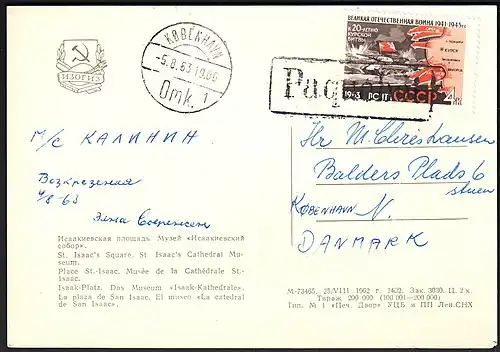 ИЗОГИЗ
KØBENHAVN
-5.8.63 19.00
Omk. 1
ВЕЛИКАЯ ОТЕЧЕСТВЕННАЯ ВОЙНА 1941-1945гг.
К 20-ЛЕТИЮ КУРСКОЙ БИТВЫ
КУРСК
1963 ПОЧТА СССР 4 коп
Paq
М/С КАЛИНИН
4/8-63
Hr M. Christiansen
Balders Plads 6
stuen
KØBENHAVN N.
DANMARK
Исаакиевская площадь. Музей «Исаакиевский
собор».
St. Isaac's Square. St. Isaac's Cathedral Mu-
seum.
Place St.-Isaac. Musée de la Cathédrale St.-
Isaac.
Isaak-Platz. Das Museum «Isaak-Kathedrale».
La plaza de San Isaac. El museo «La catedral
de San Isaac».
М-73465. 25/VIII 1962 г. 1402. Зак. 3030. Ц. 2 к.
Тираж 200 000 (100 001—200 000)
Тип. № 1 «Печ. Двор» УЦБ и ПП Лен.СНХ